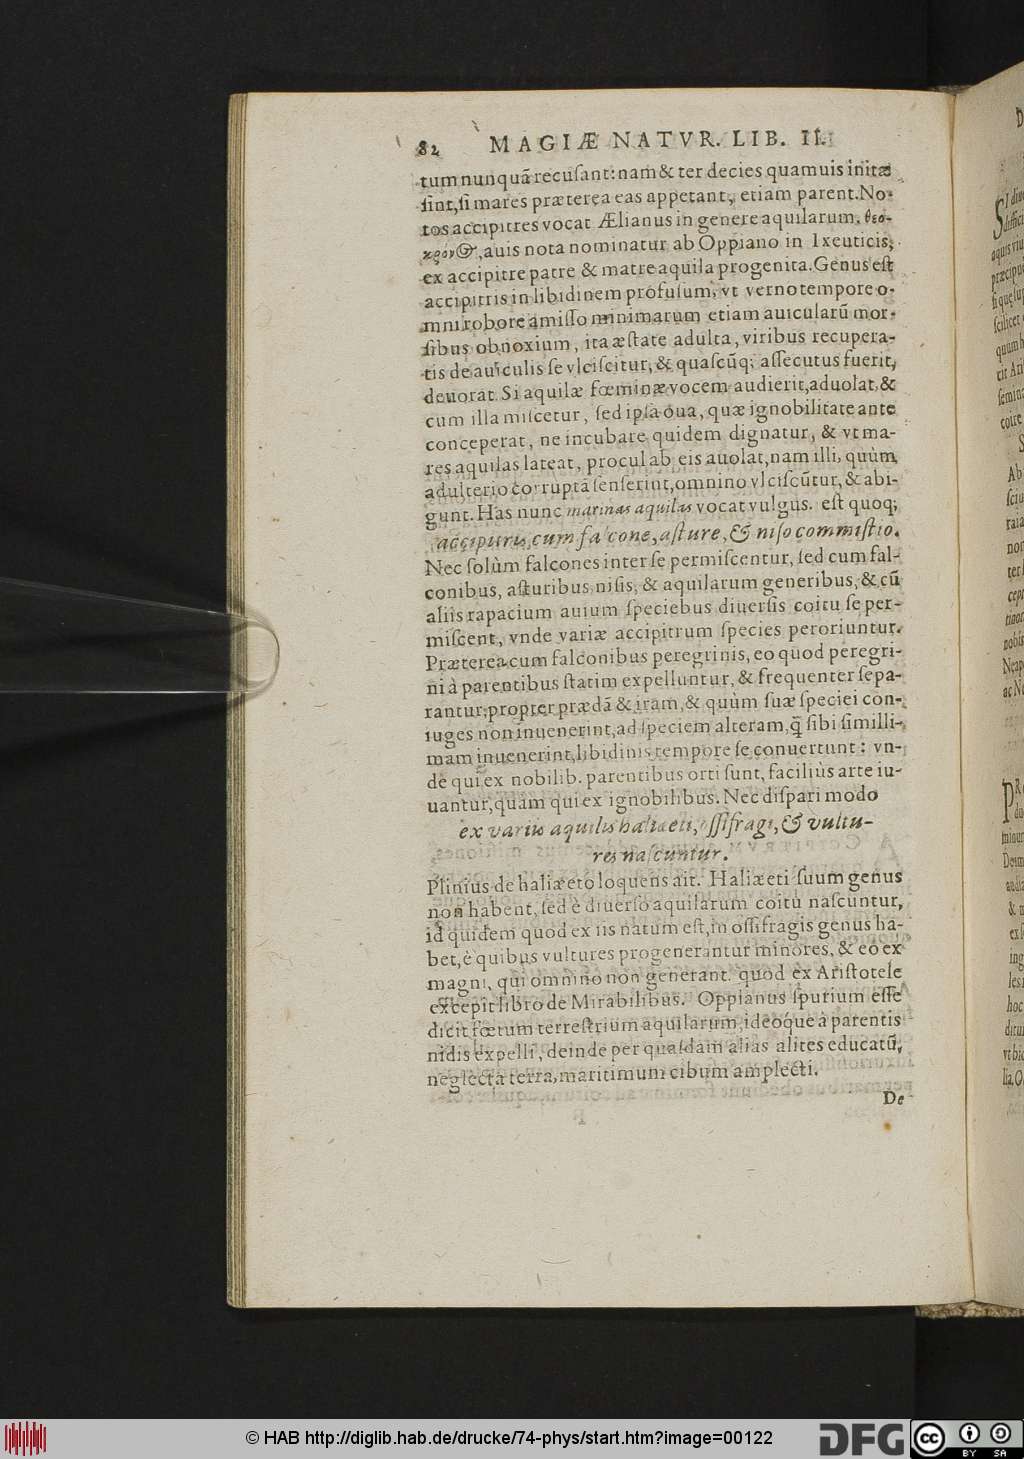 82 MAGIÆ NATVR. LIB. II.
tum nunquã recuſant: nam & ter decies quamuis initæ
ſint, ſi mares præterea eas appetant, etiam parent. No-
tos accipitres vocat Ælianus in genere aquilarum.
auis nota nominatur ab Oppiano in Ixeuticis,
ex accipitre patre & matre aquila progenita. Genus eſt
accipitris in libidinem profuſum, vt verno tempore o-
mni robore amiſſo minimarum etiam auicularũ mor-
ſibus obnoxium, ita æſtate adulta, viribus recupera-
tis de auiculis ſe vlciſcitur, & quaſcũq; aſſecutus fuerit,
deuorat. Si aquilæ fœminæ vocem audierit, aduolat, &
cum illa miſcetur, ſed ipſa oua, quæ ignobilitate ante
conceperat, ne incubare quidem dignatur, & vt ma-
res aquilas lateat, procul ab eis auolat, nam illi, quùm
adulterio corruptã ſenſerint, omnino vlciſcũtur, & abi-
gunt. Has nunc marinas aquilas vocat vulgus. eſt quoq;
accipitris, cum falcone, aſture, & niſo commiſtio.
Nec ſolùm falcones inter ſe permiſcentur, ſed cum fal-
conibus, aſturibus, niſis, & aquilarum generibus, & cũ
aliis rapacium auium ſpeciebus diuerſis coitu ſe per-
miſcent, vnde variæ accipitrum ſpecies peroriuntur.
Præterea cum falconibus peregrinis, eo quod peregri-
ni à parentibus ſtatim expelluntur, & frequenter ſepa-
rantur, propter prædã & iram, & quùm ſuæ ſpeciei con-
iuges non inuenerint, ad ſpeciem alteram, q̃ ſibi ſimilli-
mam inuenerint, libidinis tempore ſe conuertunt: vn-
de qui ex nobilib. parentibus orti ſunt, faciliùs arte iu-
uantur, quàm qui ex ignobilibus. Nec diſpari modo
ex variis aquilis haliæeti, oſſifragi, & vultu-
res naſcuntur.
Plinius de haliæeto loquens ait. Haliæeti ſuum genus
non habent, ſed è diuerſo aquilarum coitu naſcuntur,
id quidem quod ex iis natum eſt, in oſſifragis genus ha-
bet, è quibus vultures progenerantur minores, & eo ex
magni, qui omnino non generant. quod ex Ariſtotele
excepit libro de Mirabilibus. Oppianus ſpurium eſſe
dicit fœtum terreſtrium aquilarum, ideoque à parentis
nidis expelli, deinde per quaſdam alias alites educatũ,
neglecta terra, maritimum cibum amplecti.
De
© HAB http://diglib.hab.de/drucke/74-phys/start.htm?image=00122
DFG
cc BY SA